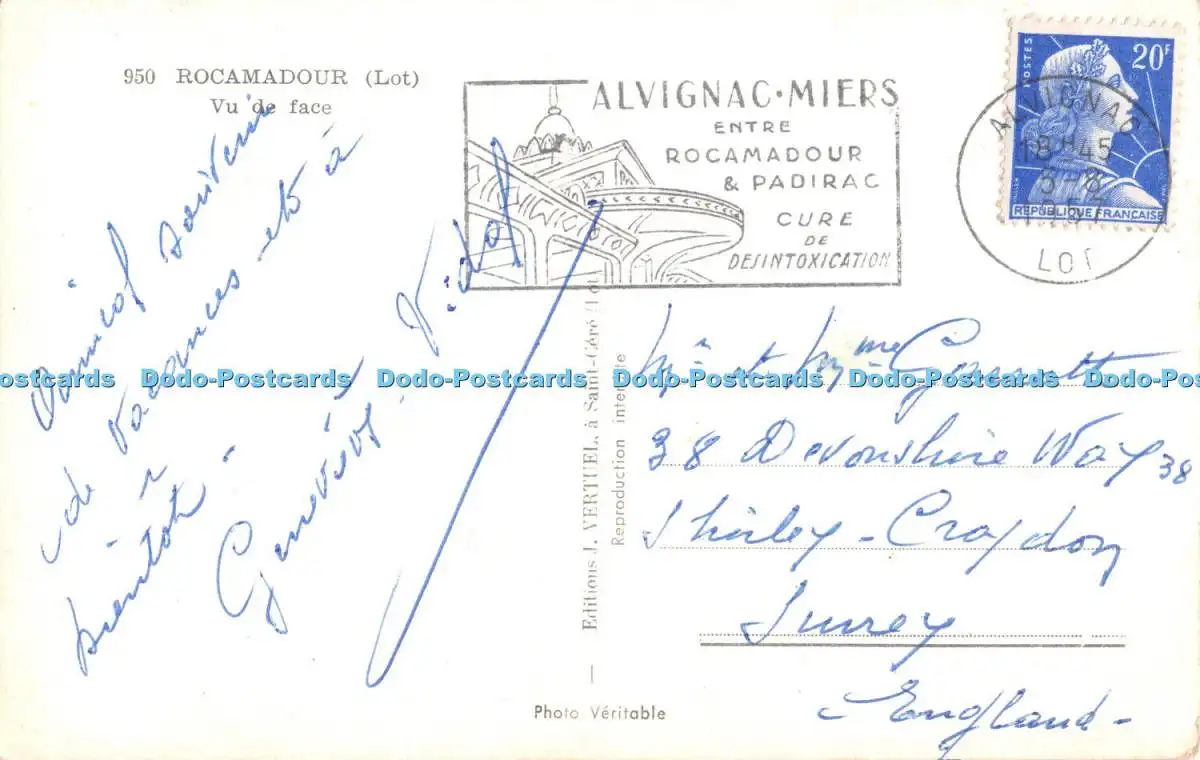 950 ROCAMADOUR (Lot)
Vu de face
Amical souvenir
de vacances et à
bientôt.
Geneviève Vidal
ALVIGNAC·MIERS
ENTRE
ROCAMADOUR
& PADIRAC
CURE
DE
DESINTOXICATION
POSTES
20F
REPUBLIQUE FRANCAISE
ALVIGNAC
18H45
1957
LOT
Editions J. VERTUEL, à Saint-Céré (Lot
Reproduction interdite
Mr et Mme
38 Devonshire Way 38
Shirley - Croydon
Surrey
England -
Photo Véritable
Dodo-Postcards Dodo-Postcards Dodo-Postcards Dodo-Postcards Dodo-Postcards Dodo-Postcards